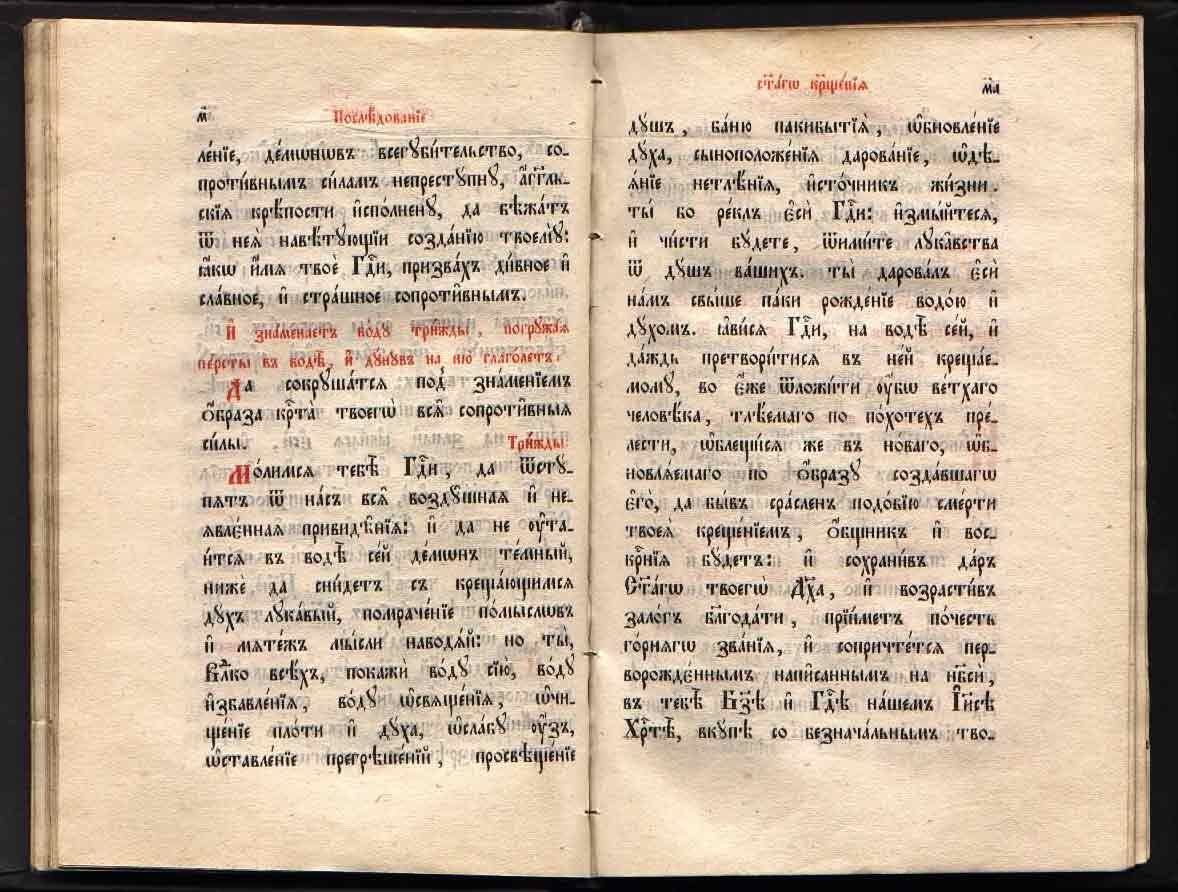 м҃
Послѣ́дованїе
ле́нїе, де́мѡнѡвъ всегуби́тельство, со-
проти́внымъ си́ламъ непресту́пну, а҆́гг҃ль-
скїѧ крѣ́пости и҆спо́лнену, да бѣжа́тъ
ѿ неѧ̀ навѣ́тующїи созда́нїю твоемꙋ̀:
ꙗ҆́кѡ и҆́мѧ твоѐ Гдⷭ҇и, призва́хъ ди́вное и҆
сла́вное, и҆ стра́шное сопроти́внымъ.
И҆ зна́менаетъ во́ду три́жды, погружа́ѧ
пе́рсты въ водѣ̀, и҆ ду́нувъ на ню̀ глаго́летъ.
Да сокруша́тсѧ под̾ зна́менїемъ
ѻ҆́браза крⷭ҇та̀ твоегѡ̀ всѧ̑ сопроти̑вныѧ
си̑лы. Три́жды.
Мо́лимсѧ тебѣ̀ Гдⷭ҇и, да ѿсту́-
пѧтъ ѿ на́съ всѧ̑ возду̑шнаѧ и҆ не-
ѧвлє́ннаѧ привидѣ̑нїѧ: и҆ да не ᲂу҆та-
и́тсѧ въ водѣ̀ се́й де́мѡнъ те́мный,
нижѐ да сни́детъ съ креща́ющимсѧ
ду́хъ лука́вый, помраче́нїе по́мыслѡвъ
и҆ мѧте́жъ мы́сли наводѧ́й: но ты̀,
Влⷣко всѣ́хъ, покажѝ во́ду сїю̀, во́ду
и҆збавле́нїѧ, во́ду ѡ҆свѧще́нїѧ, ѡ҆чи-
ще́нїе пло́ти и҆ ду́ха, ѡ҆сла́бу ᲂу҆́зъ,
ѡ҆ставле́нїе прегрѣше́нїй, просвѣще́нїе
ст҃а́гѡ крⷳще́нїѧ
м҃а
ду́шъ, ба́ню пакибытїѧ̀, ѡ҆бновле́нїе
ду́ха, сыноположе́нїѧ дарова́нїе, ѡ҆дѣ-
ѧ́нїе нетлѣ́нїѧ, и҆сто́чникъ жи́зни.
ты́ бо ре́клъ є҆сѝ Гдⷭ҇и: и҆змы́йтесѧ,
и҆ чи́сти бу́дете, ѿими́те лука̑вства
ѿ ду́шъ ва́шихъ. ты̀ дарова́лъ є҆сѝ
на́мъ свы́ше па́ки рожде́нїе водо́ю и҆
ду́хомъ. ꙗ҆ви́сѧ Гдⷭ҇и, на водѣ̀ се́й, и҆
да́ждь претвори́тисѧ въ не́й креща́е-
мому, во є҆́же ѿложи́ти ᲂу҆́бѡ ве́тхаго
человѣ́ка, тлѣ́емаго по по́хотехъ пре́-
лести, ѡ҆блещи́сѧ же въ но́ваго, ѡ҆б-
новлѧ́емаго по ѻ҆́бразу созда́вшагѡ
є҆го̀, да бы́въ сра́сленъ подо́бїю сме́рти
твоеѧ̀ креще́нїемъ, ѻ҆́бщникъ и҆ вос-
крⷭ҇нїѧ бу́детъ: и҆ сохрани́въ да́ръ
Ст҃а́гѡ твоегѡ̀ Дх҃а, и҆ возрасти́въ
зало́гъ блгⷣода́ти, прїи́метъ по́честь
го́рнѧгѡ зва́нїѧ, и҆ сопричте́тсѧ пер-
ворождє́ннымъ напи̑саннымъ на нб҃сѝ,
въ тебѣ̀ Бз҃ѣ и҆ Гдⷭ҇ѣ на́шемъ І҆и҃сѣ
Хрⷭ҇тѣ̀, вку́пѣ со безнача́льнымъ тво-